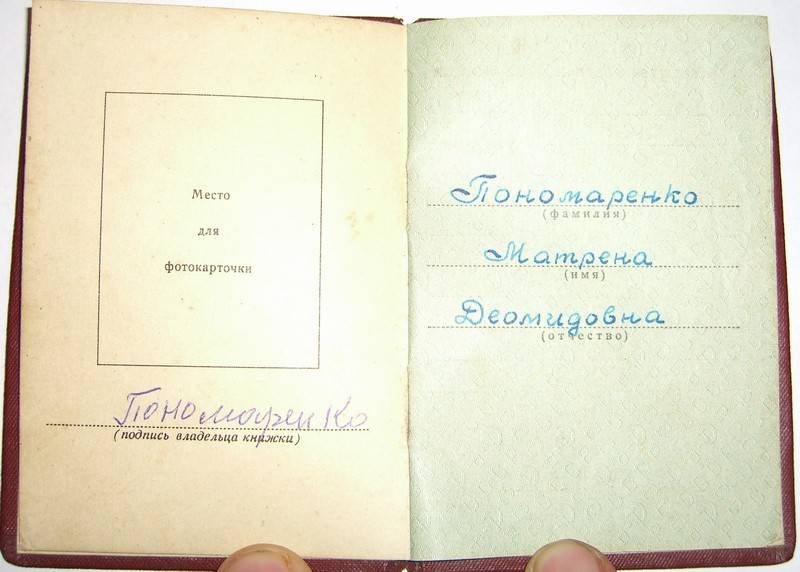 Место
для
фотокарточки
Пономаренко
(подпись владельца книжки)
Пономаренко
(фамилия)
Матрена
(имя)
Деомидовна
(отчество)